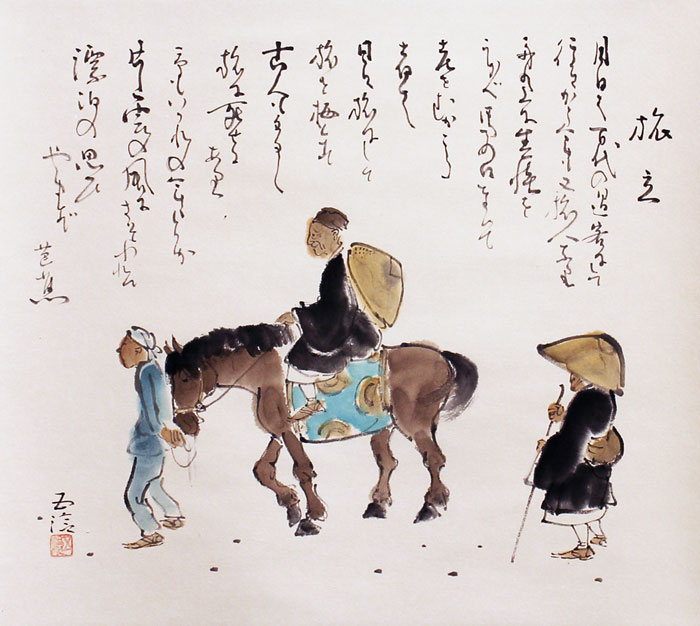 旅立
月日は百代の過客にして
行かふ年も又旅人也
舟の上に生涯を
うかべ馬の口とらえて
老をむかふる
者は
日々旅にして
旅を栖とす
古人も多く
旅に死せるあり
予もいづれの年よりか
片雲の風にさそはれて
漂泊の思ひ
やまず
芭蕉